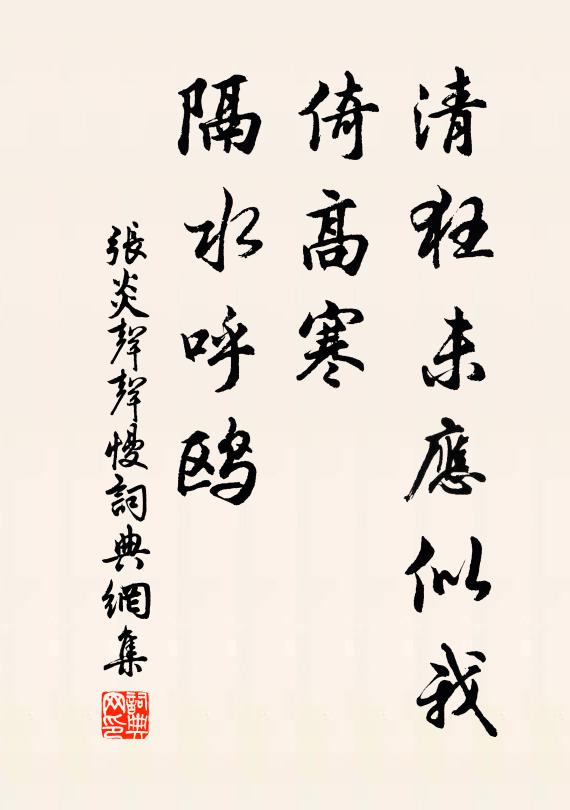 清狂未應似我
倚高寒
隔水呼鸥
張炎聲聲慢詞典網集
詞典网印